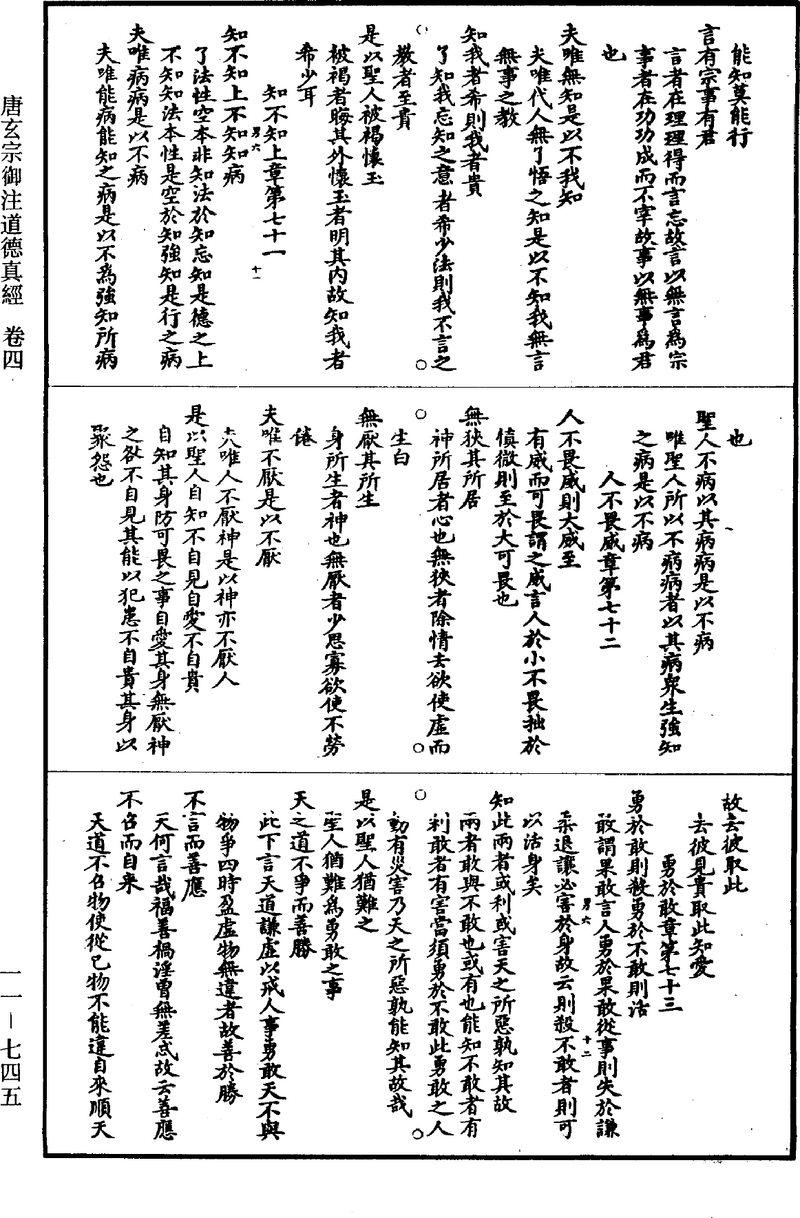 能知莫能行
言有宗事有君
言者在理理得而言忘故言以無言為宗
事者在功功成而不宰故事以無事為君
也
夫唯無知是以不我知
夫唯代人無了悟之知是以不知我無言
無事之教
知我者希則我者貴
了知我忘知之意者希少法則我不言之
教者至貴
是以聖人被褐懷玉
被褐者晦其外懷玉者明其內故知我者
希少耳
知不知上章第七十一
男六
十一
知不知上不知知病
了法性空本非知法於知忘知是德之上
不知知法本性是空於知強知是行之病
夫唯病病是以不病
夫唯能病能知之病是以不為強知所病
也
聖人不病以其病病是以不病
唯聖人所以不病病者以其病衆生強知
之病是以不病
人不畏威章第七十二
人不畏威則大威至
有威而可畏謂之威言人於小不畏拙於
慎微則至於大可畏也
無狹其所居
神所居者心也無狹者除情去欲使虛而
生白
無厭其所生
身所生者神也無厭者少思寡欲使不勞
倦
夫唯不厭是以不厭
夫唯人不厭神是以神亦不厭人
是以聖人自知不自見自愛不自貴
自知其身防可畏之事自愛其身無厭神
之欲不自見其能以犯患不自貴其身以
聚怨也
故去彼取此
去彼見貴取此知愛
勇於敢章第七十三
勇於敢則殺勇於不敢則活
敢謂果敢言人勇於果敢從事則失於謙
柔退讓必害於身故云則殺不敢者則可
男六
十二
以活身矣
知此兩者或利或害天之所惡孰知其故
兩者敢與不敢也或有也能知不敢者有
利敢者有害當須勇於不敢此勇敢之人
動有災害乃天之所惡孰能知其故哉
是以聖人猶難之
聖人猶難為勇敢之事
天之道不爭而善勝
此下言天道謙虛以戒人事勇敢天不與
物爭四時盈虛物無違者故善於勝
不言而善應
天何言哉福善禍淫曾無差忒故云善應
不召而自來
天道不召物使從己物不能違自來順天
唐玄宗御注道德真經 卷四
一一－七四五